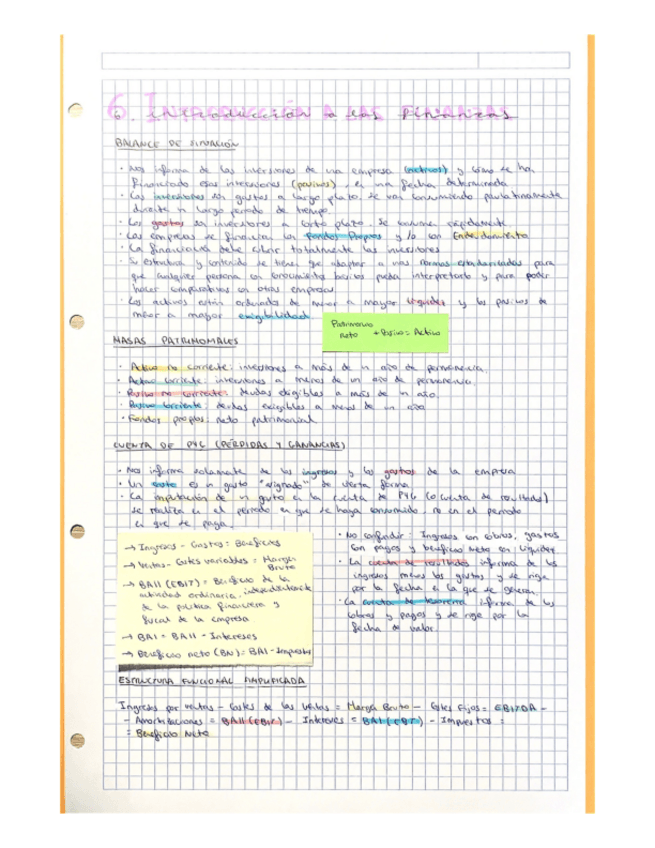 6. Introducción a las finanzas
BALANCE DE SITUACIÓN
· Nos informa de las inversiones de una empresa (activos) y cómo se han
financiado esas inversiones (pasivos), en una fecha determinada
· Las inversiones son gastos a largo plazo. Se van consumiendo paulatinamente
durante un largo periodo de tiempo.
· Los gastos son inversiones a corto plazo. Se consume rápidamente
· Las empresas se financian con Fondos Propios y/o con Endeudamiento
· La financiación debe cubrir totalmente las inversiones
· Su estructura y contenido se tienen que adaptar a unas normas estandarizadas para
que cualquier persona con conocimientos básicos pueda interpretarlo y para poder
hacer comparativas con otras empresas
· Los activos están ordenados de menor a mayor liquidez y los pasivos de
menor a mayor exigibilidad.
Patrimonio
neto + Pasivo = Activo
MASAS PATRIMONIALES
· Activo no corriente: inversiones a más de un año de permanencia.
· Activo corriente: inversiones a menos de un año de permanencia.
· Pasivo no corriente: deudas exigibles a más de un año.
· Pasivo corriente: deudas exigibles a menos de un año
· Fondos propios: neto patrimonial
CUENTA DE PYG (PÉRDIDAS Y GANANCIAS)
· Nos informa solamente de los ingresos y los gastos de la empresa
· Un coste es un gasto "asignado" de cierta forma
· La imputación de un gasto en la cuenta de PYG (o cuenta de resultados)
se realiza en el periodo en que se haya consumido, no en el periodo
en que se paga.
→ Ingresos - Gastos = Beneficios
→ Ventas - Costes variables = Margen
Bruto
→ BAII (EBIT) = Beneficio de la
actividad ordinaria, independientemente
de la política financiera y
fiscal de la empresa
→ BAI = BAII - Intereses
→ Beneficio neto (BN) = BAI - Impuestos
· No confundir: Ingresos con cobros, gastos
con pagos y beneficio neto con liquidez
· La cuenta de resultados informa de los
ingresos menos los gastos y se rige
por la fecha en la que se generan.
· La cuenta de tesorería informa de los
cobros y pagos y se rige por la
fecha de valor.
ESTRUCTURA FUNCIONAL SIMPLIFICADA
Ingresos por ventas - Costes de las ventas = Margen Bruto - Costes Fijos = EBITDA -
- Amortizaciones = BAII (EBIT) - Intereses = BAI (EBT) - Impuestos =
= Beneficio Neto